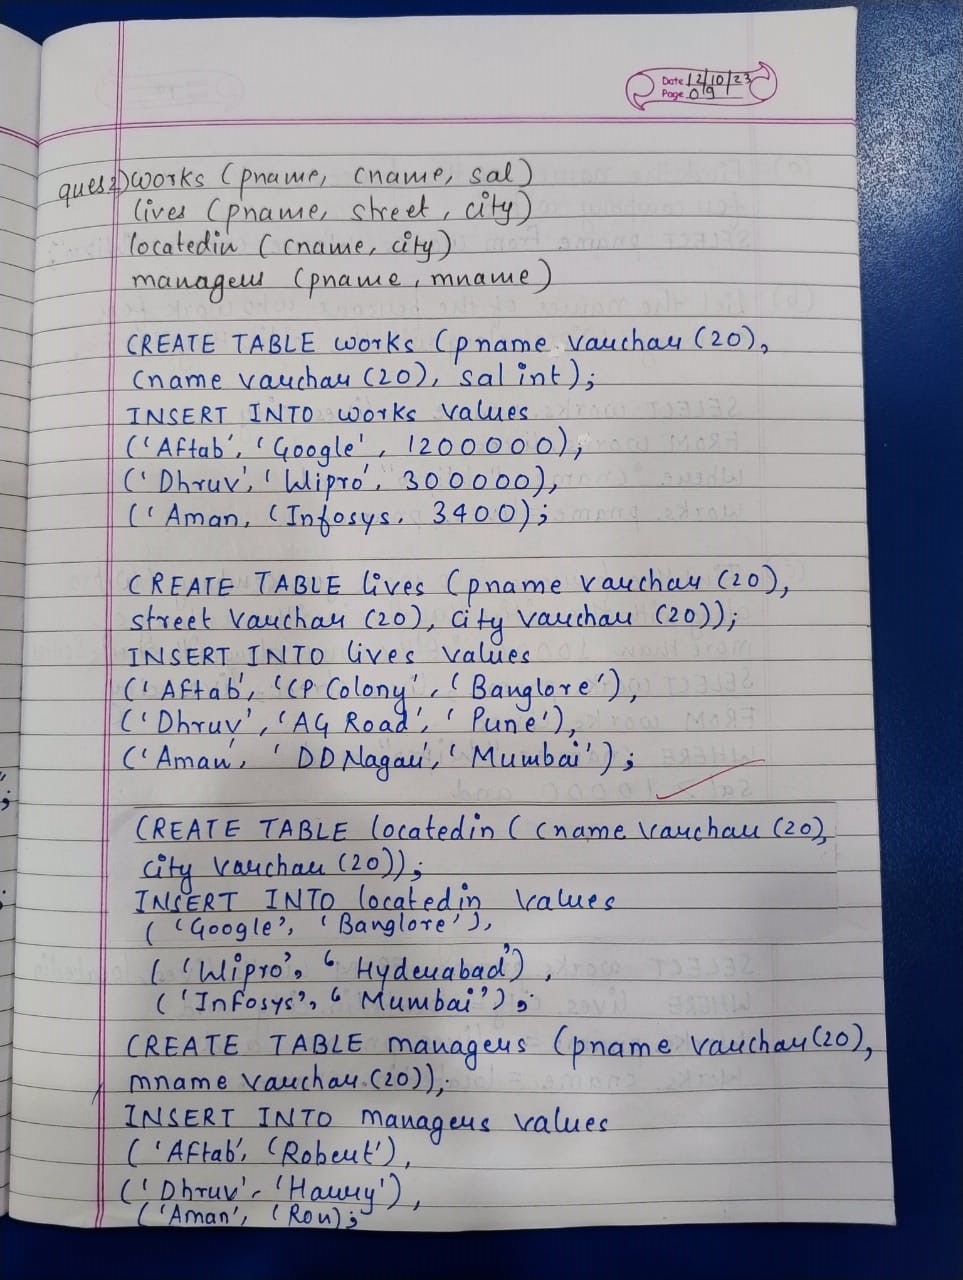 Date 12/10/23
Page 09
ques 2) works (pname, cname, sal)
lives (pname, street, city)
locatedin (cname, city)
managers (pname, mname)
CREATE TABLE works (pname varchar (20),
cname varchar (20), sal int);
INSERT INTO works values
('Aftab', 'Google', 1200000),
('Dhruv', 'Wipro', 300000),
('Aman, 'Infosys, 3400);
CREATE TABLE lives (pname varchar (20),
street varchar (20), city varchar (20));
INSERT INTO lives values
('Aftab', 'CP Colony', 'Banglore'),
('Dhruv', 'AG Road', 'Pune'),
('Aman', 'DD Nagar', 'Mumbai');
CREATE TABLE locatedin (cname varchar (20),
city varchar (20));
INSERT INTO locatedin values
('Google', 'Banglore'),
('Wipro', 'Hyderabad'),
('Infosys', 'Mumbai');
CREATE TABLE managers (pname varchar (20),
mname varchar (20));
INSERT INTO managers values
('Aftab', 'Robert'),
('Dhruv', 'Harry'),
('Aman', 'Ron);